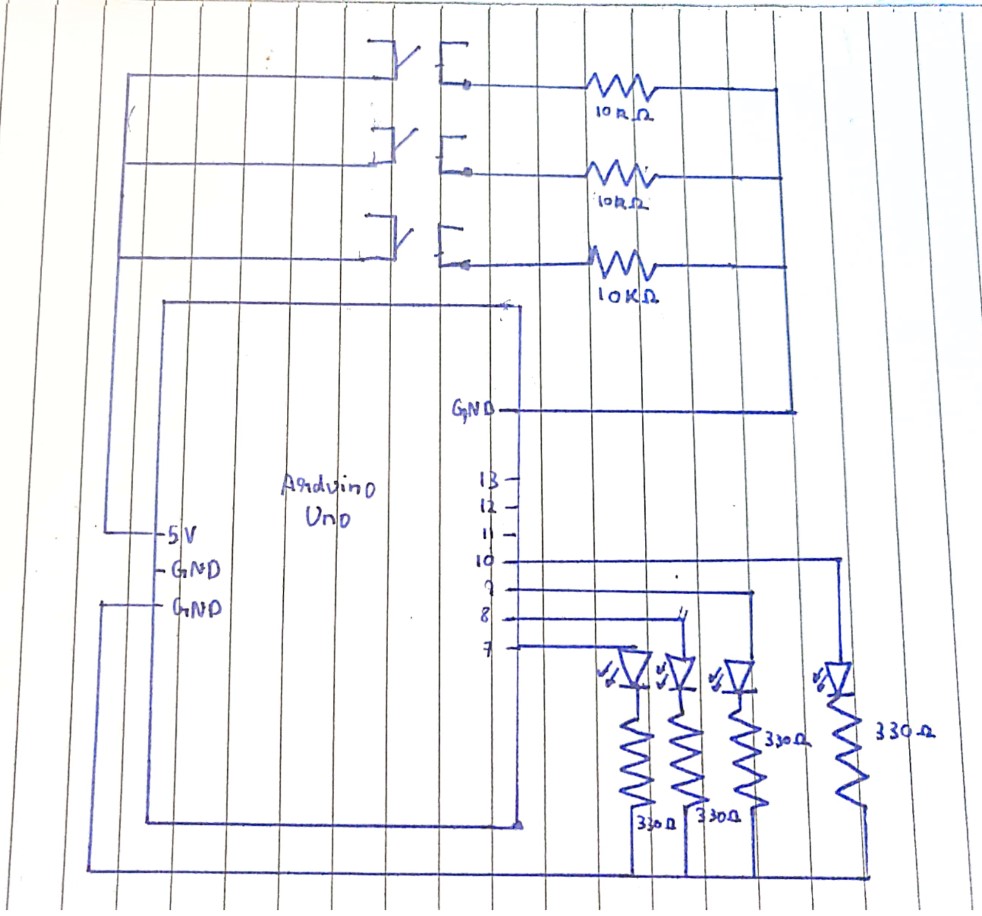 10kΩ
10kΩ
10KΩ
GND
Arduino
Uno
13
12
11
10
9
8
7
5V
GND
GND
330Ω
330Ω
330Ω
330Ω